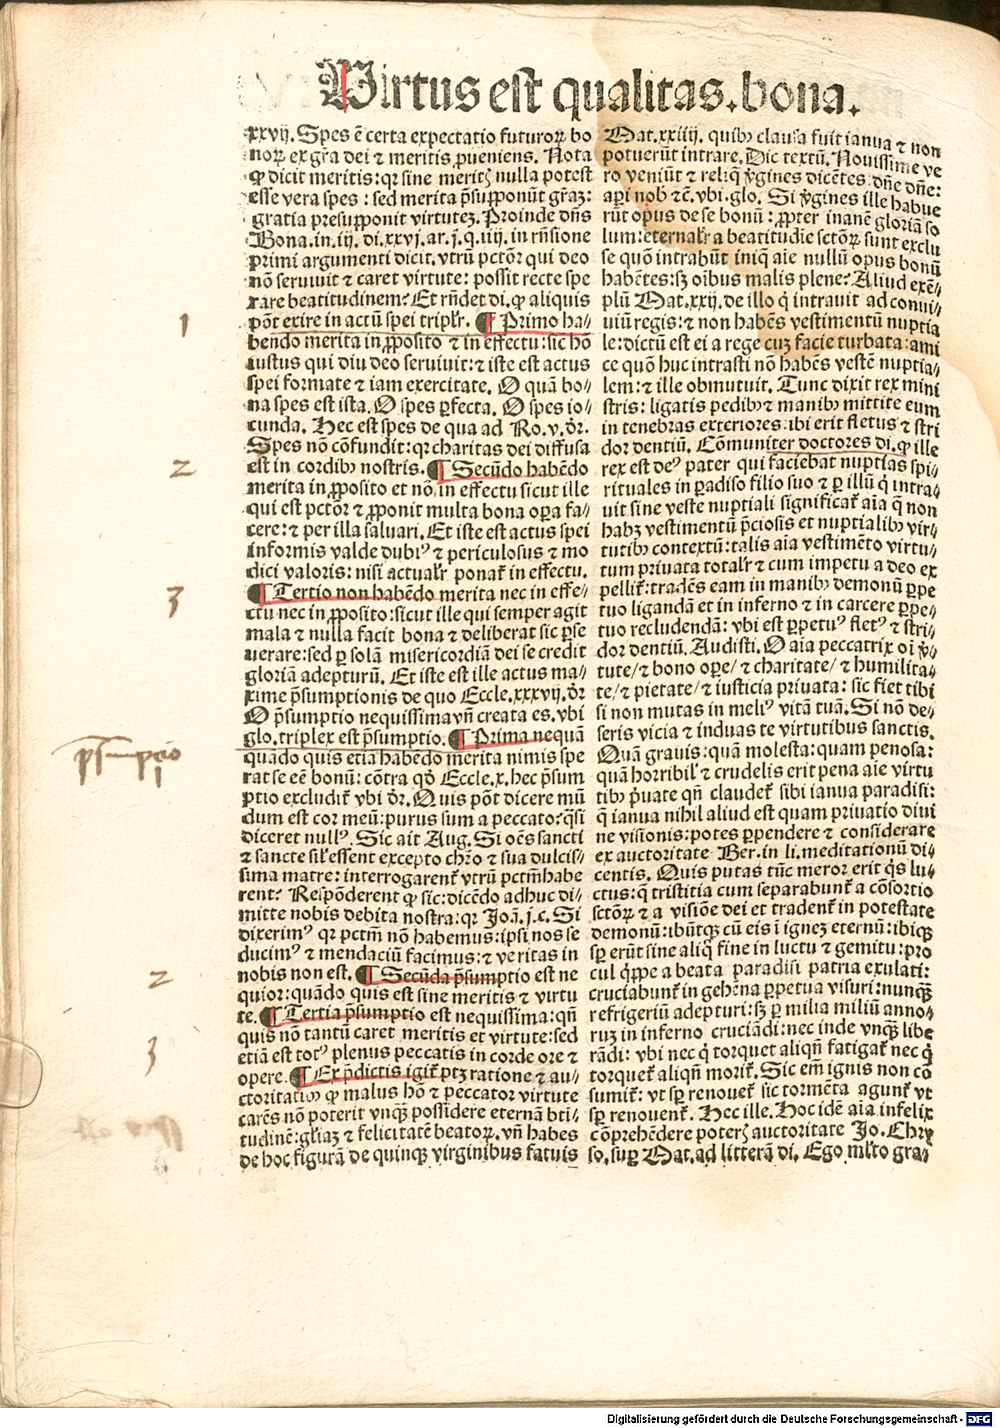 Virtus est qualitas.bona.
xxvij. Spes ē certa expectatio futuroꝝ bo
noꝝ ex gr̄a dei ⁊ meritis ꝓueniens. Nota
ꝙ dicit meritis: qꝛ sine meritꝭ nulla potest
esse vera spes: sed merita p̄supponūt gr̄az:
gratia presupponit virtutez. Proinde dn̄s
Bona. in.iij. di.xxvj. ar.j.q.iiij. in rn̄sione
primi argumenti dicit. vtrū pctōr qui deo
nō seruiuit ⁊ caret virtute: possit recte spe
rare beatitudinem? Et rn̄det di. ꝙ aliquis
pōt exire in actū spei tripl'r. ¶ Primo ha⸗
bendo merita in ꝓposito ⁊ in effectu: sic hō
iustus qui diu deo seruiuit: ⁊ iste est actus
spei formate ⁊ iam exercitate. O quā bo⸗
na spes est ista. O spes ꝑfecta. O spes io⸗
cunda. Hec est spes de qua ad Ro.v. dr̄.
Spes nō cōfundit: qꝛ charitas dei diffusa
est in cordibꝫ nostris. ¶ Secūdo habēdo
merita in ꝓposito et nō in effectu sicut ille
qui est pctōr ⁊ ꝓponit multa bona oꝑa fa⸗
cere: ⁊ per illa saluari. Et iste est actus spei
informis valde dubiꝰ ⁊ periculosus ⁊ mo
dici valoris: nisi actual'r ponat᷑ in effectu.
¶ Tertio non habēdo merita nec in effe⸗
ctu nec in ꝓposito: sicut ille qui semper agit
mala ⁊ nulla facit bona ⁊ deliberat sic ꝑse
uerare: sed ꝑ solā misericordiā dei se credit
gloriā adepturū. Et iste est ille actus ma⸗
xime p̄sumptionis de quo Eccle.xxxvij. dr̄
O p̄sumptio nequissima vn̄ creata es. vbi
glo. triplex est p̄sumptio. ¶ Prima nequā
quādo quis etiā habēdo merita nimis spe
rat se eē bonū: cōtra qd̄ Eccle.x. hec p̄sum
ptio excludit᷑ vbi dr̄. Quis pōt dicere mū
dum est cor meū: purus sum a peccato? q̄si
diceret nullꝰ. Sic ait Aug. Si oēs sancti
⁊ sancte sil' essent excepto chr̄o ⁊ sua dulcis⸗
sima matre: interrogarent᷑ vtrū pctm̄ habe
rent? Respōderent ꝙ sic: dicēdo adhuc di⸗
mitte nobis debita nostra: qꝛ Joā.j.c. Si
dixerimꝰ qꝛ pctm̄ nō habemus: ipsi nos se
ducimꝰ ⁊ mendaciū facimus: ⁊ veritas in
nobis non est. ¶ Secūda p̄sumptio est ne
quior: quādo quis est sine meritis ⁊ virtu
te. ¶ Tertia p̄sumptio est nequissima: qn̄
quis nō tantū caret meritis et virtute: sed
etiā est totꝰ plenus peccatis in corde ore ⁊
opere. ¶ Ex p̄dictis igit᷑ ptꝫ ratione ⁊ au⸗
ctoritatibꝫ ꝙ malus hō ⁊ peccator virtute
carēs nō poterit vnqꝫ possidere eternā bti⸗
tudinē: gl'iaꝫ ⁊ felicitatē beatoꝝ. vn̄ habes
de hoc figurā de quinqꝫ virginibus fatuis
Mat.xxiiij. quibꝫ clausa fuit ianua ⁊ non
potuerūt intrare. Dic textū. Nouissime ve
ro veniūt ⁊ reliq̄ v̄gines dicētes: dn̄e dn̄e:
aperi nob ⁊c̄. vbi. glo. Si v̄gines ille habue
rūt opus de se bonū: ꝓpter inanē gloriā so
lum: eternal'r a beatitudīe sctōꝝ sunt exclu
se quō intrabūt iniq̄ aīe nullū opus bonū
habētes: sꝫ oībus malis plene? Aliud exē⸗
plū Mat.xxij. de illo q̇ intrauit ad conui⸗
uiū regis: ⁊ non habēs vestimentū nuptia
le: dictū est ei a rege cuꝫ facie turbata: ami
ce quō huc intrasti nō habēs vestē nuptia⸗
lem: ⁊ ille obmutuit. Tunc dixit rex mini
stris: ligatis pedibꝫ ⁊ manibꝫ mittite eum
in tenebras exteriores: ibi erit fletus ⁊ stri
dor dentiū. Cōmuniter doctores di. ꝙ ille
rex est deꝰ pater qui faciebat nuptias spi⸗
rituales in ꝑadiso filio suo ⁊ ꝑ illū q̇ intra⸗
uit sine veste nuptiali significat᷑ aīa q̄ non
habꝫ vestimentū p̄ciosis et nuptialibꝫ vir⸗
tutibꝫ contextū: talis aīa vestimēto virtu⸗
tum priuata total'r ⁊ cum impetu a deo ex
pellit᷑: tradēs eam in manibꝫ demonū ꝑpe
tuo ligandā et in inferno ⁊ in carcere ꝑpe⸗
tuo recludendā: vbi est ꝑpetuꝰ fletꝰ ⁊ stri⸗
dor dentiū. Audisti. O aīa peccatrix oī v̄⸗
tute/ ⁊ bono oꝑe/ ⁊ charitate/ ⁊ humilita⸗
te/ ⁊ pietate/ ⁊ iusticia priuata: sic fiet tibi
si non mutas in meliꝰ vitā tuā. Si nō de⸗
seris vicia ⁊ induas te virtutibus sanctis.
Quā grauis: quā molesta: quam penosa:
quā horribil' ⁊ crudelis erit pena aīe virtu
tibꝫ p̄uate qn̄ claudet᷑ sibi ianua paradisi:
q̄ ianua nihil aliud est quam priuatio diui
ne visionis: potes ꝑpendere ⁊ considerare
ex auctoritate Ber. in li. meditationū di⸗
centis. Quis putas tūc meror erit q̇s lu⸗
ctus: q̄ tristitia cum separabunt᷑ a cōsortio
sctōꝝ ⁊ a visiōe dei et tradent᷑ in potestate
demonū: ibūtqꝫ cū eis ī ignez eternū: ibiqꝫ
sꝑ erūt sine aliq̄ fine in luctu ⁊ gemitu: pro
cul q̇ppe a beata paradisi patria exulati:
cruciabunt᷑ in gehēna ꝑpetua visuri: nunqꝫ
refrigeriū adepturi: sꝫ ꝑ milia miliū anno⸗
ruꝫ in inferno cruciādi: nec inde vnqꝫ libe
rādi: vbi nec q̇ torquet aliqn̄ fatigat᷑ nec q̇
torquet᷑ aliqn̄ morit᷑. Sic em̄ ignis non cō
sumit᷑: vt sꝑ renouet᷑ sic tormēta agunt᷑ vt
sꝑ renouent᷑. Hec ille. Hoc idē aīa infelix
cōprehēdere poterꝭ auctoritate Jo. Chry
so. suꝑ Mat. ad litterā di. Ego ml'to gra⸗
1
2
3
p̄sumpcio
1
2
3
Digitalisierung gefördert durch die Deutsche Forschungsgemeinschaft - DFG